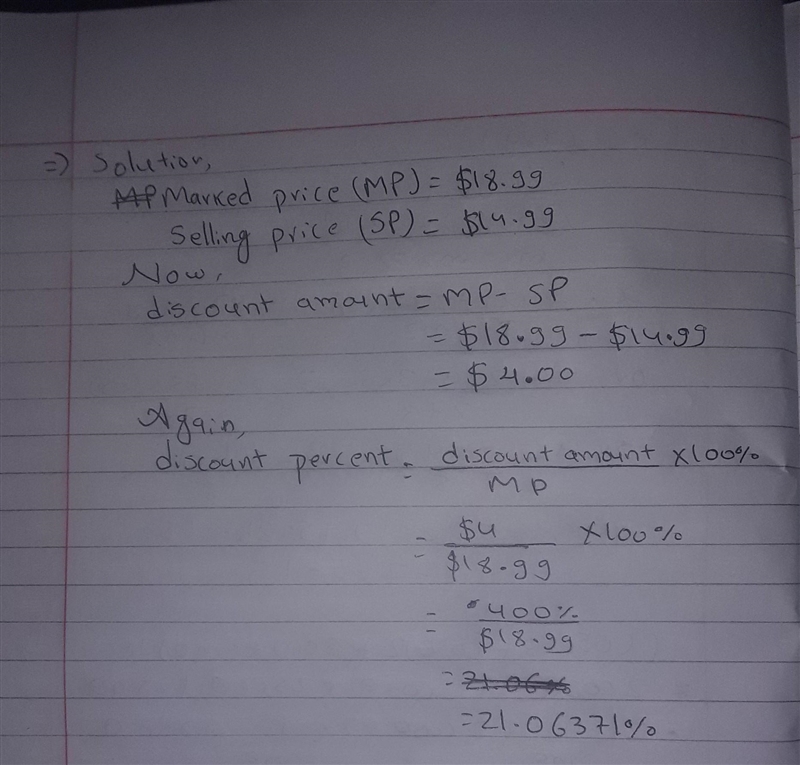 => Solution,
MP Marked price (MP) = $18.99
Selling price (SP) = $14.99
Now,
discount amaint = MP - SP
= $18.99 - $14.99
= $4.00
Again,
discount percent = discount amount × 100%
MP
= $4 × 100%
$18.99
= 400%
$18.99
= 21.06%
= 21.06371%